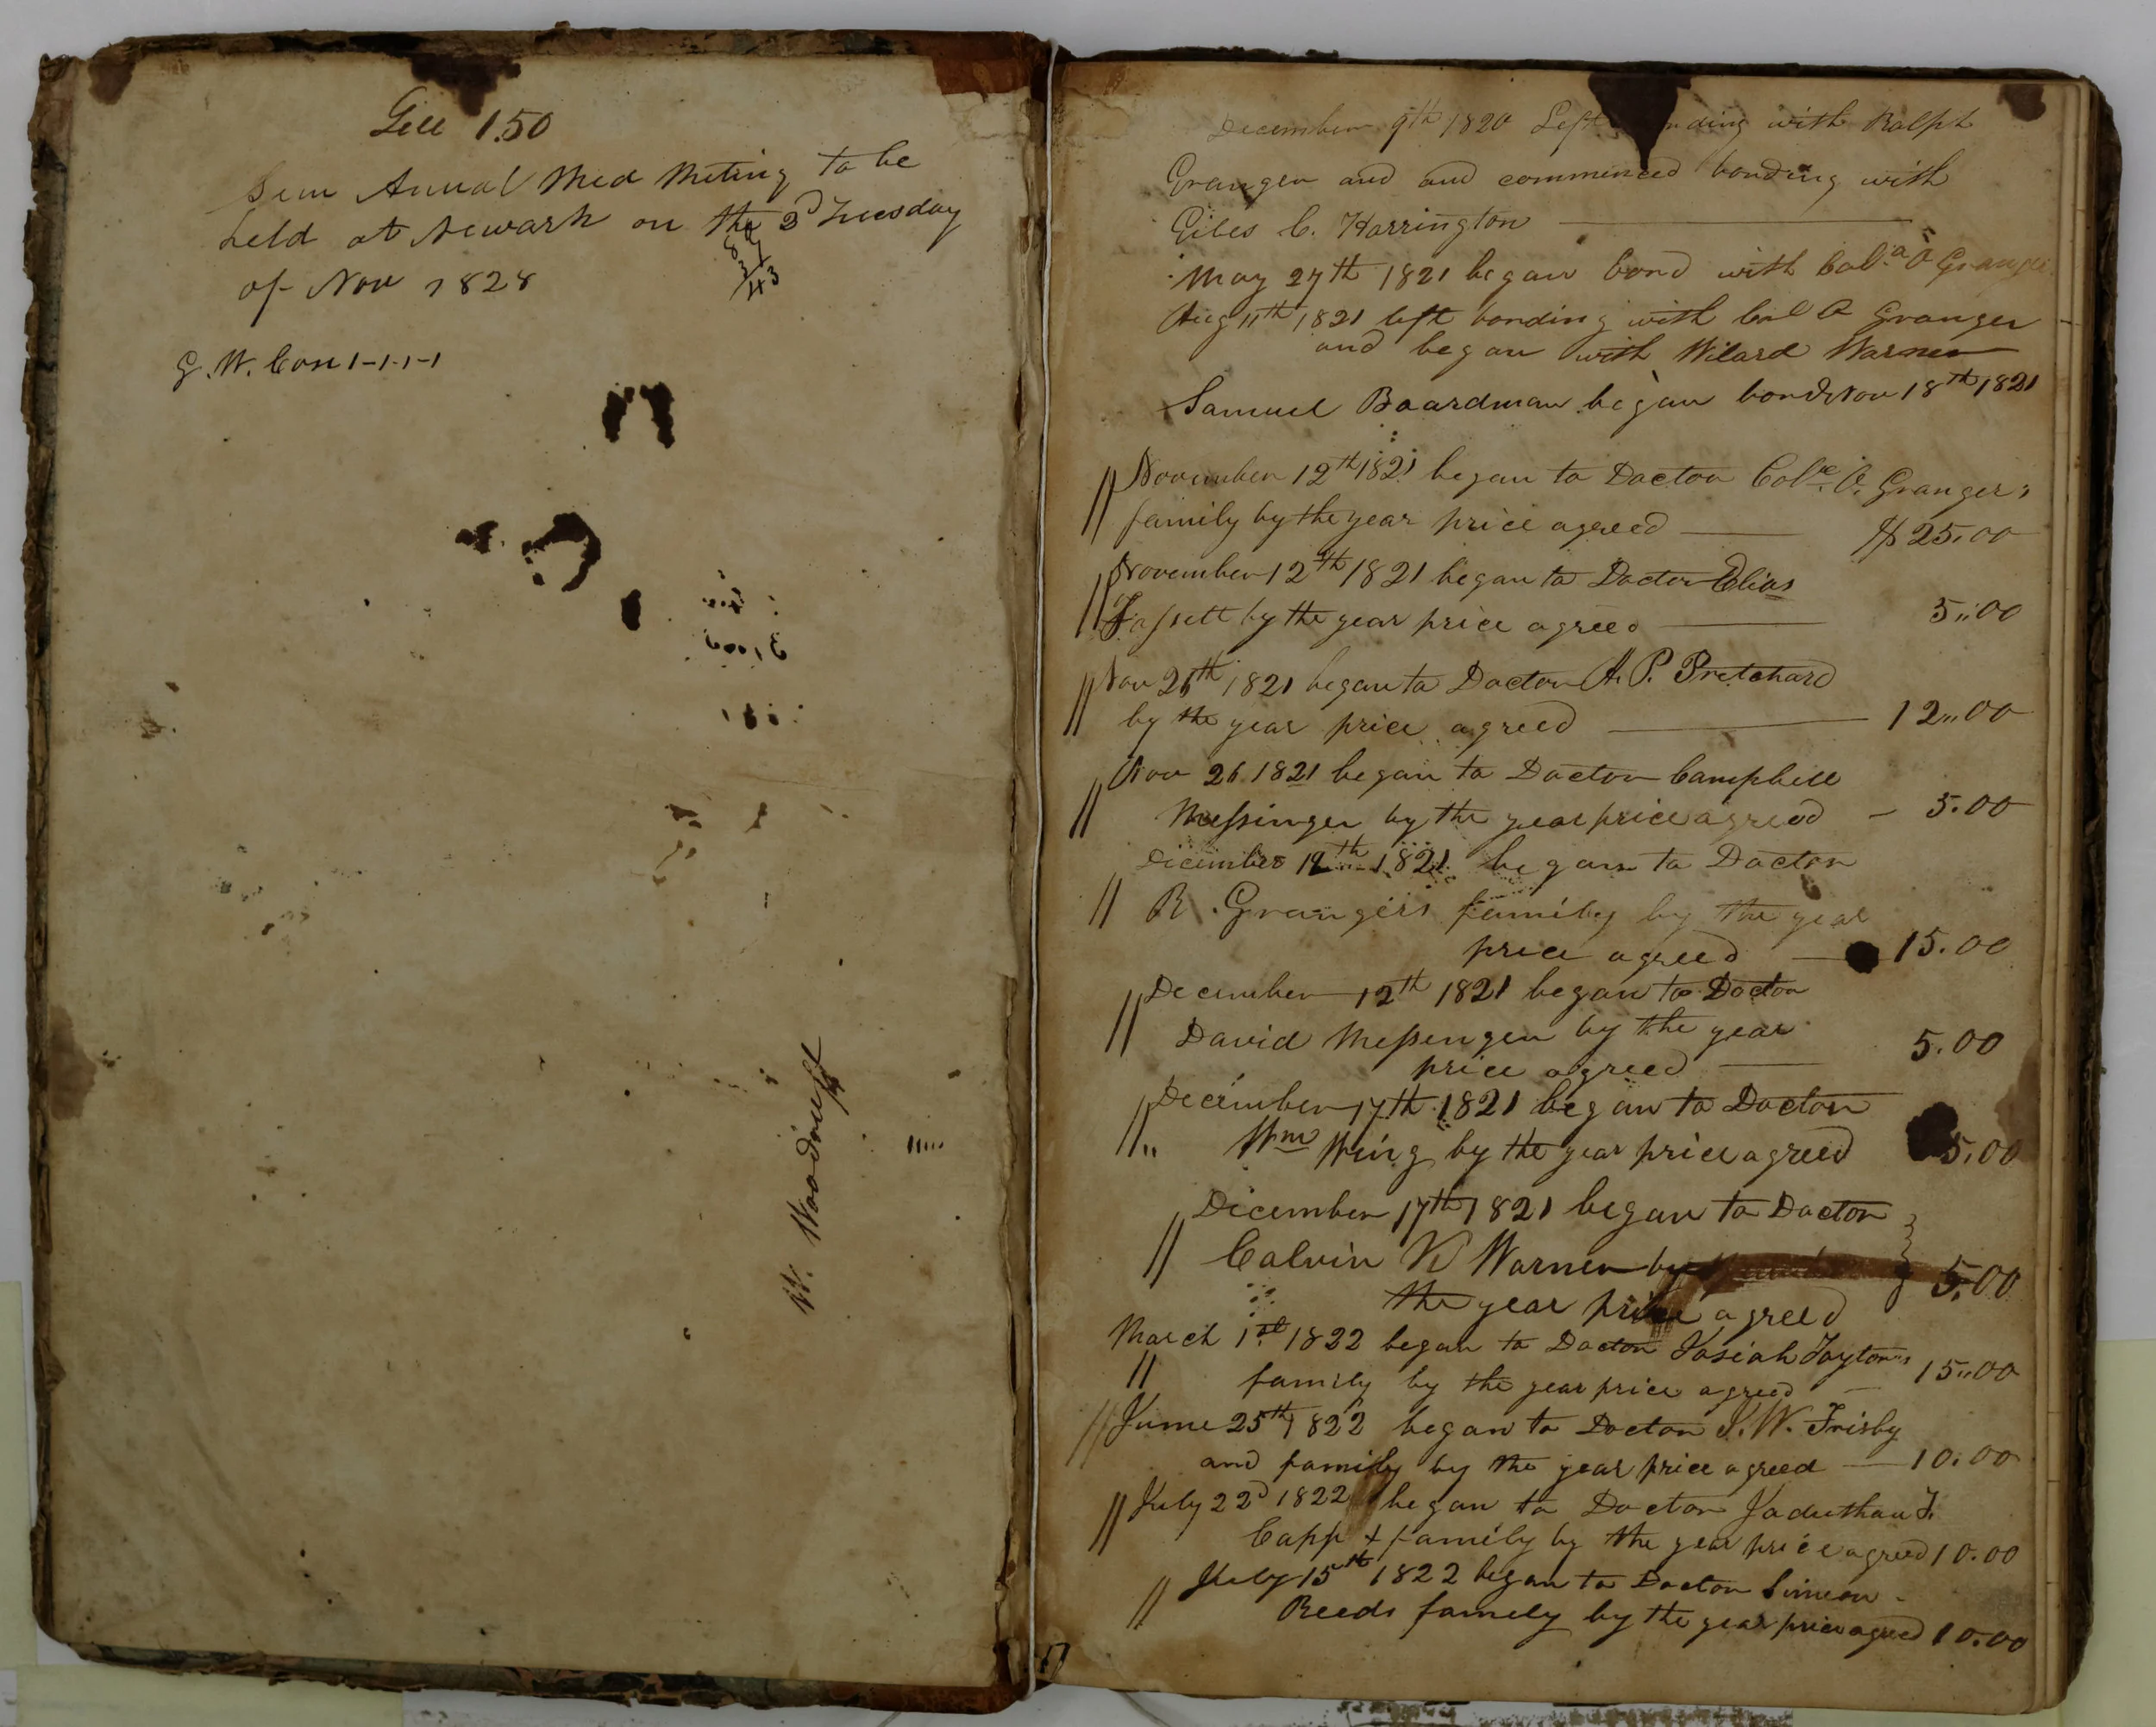 Gell 1.50
Sem Annual Med Meting to be
held at Newark on the 2d Tuesday
of Nov 1828
G. W. Con 1-1-1-1
W. Woodruff
December 9th 1820 Left nding with Ralph
Granger and and commenced bording with
Giles C. Harrington
May 27th 1821 began bord with Col. O Granger
Aug 11th 1821 left bording with Col O Granger
and began with Wilard Warner
Samuel Boardman began bord Nov 18th 1821
November 12th 1821 began to Doctor Col. O. Granger,s
family by the year price agreed $25.00
November 12th 1821 began to Doctor Elias
Fassett by the year price agreed 5,,00
Nov 26th 1821 began to Doctor A. P. Pretchard
by the year price agreed 12,,00
Nov 26 1821 began to Doctor Campbell
Messinger by the year price agreed - 5.00
December 12th 1821 began to Doctor
R. Grangers family by the year
price agreed 15.00
December 12th 1821 began to Doctor
David Messenger by the year
price agreed 5.00
December 17th 1821 began to Doctor
Wm Wing by the year price agreed 5.00
December 17th 1821 began to Doctor
Calvin K Warner by
the year price agreed 5.00
March 1st 1822 began to Doctor Josiah Taytor,s
family by the year price agreed - 15,,00
June 25th 1822 began to Doctor S. W. Frisby
and family by the year price agreed - 10.00
July 22d 1822 began to Doctor Jaduthan F.
Capp & family by the year price agreed 10.00
July 15th 1822 began to Doctor Simeon
Reeds family by the year price agreed 10.00